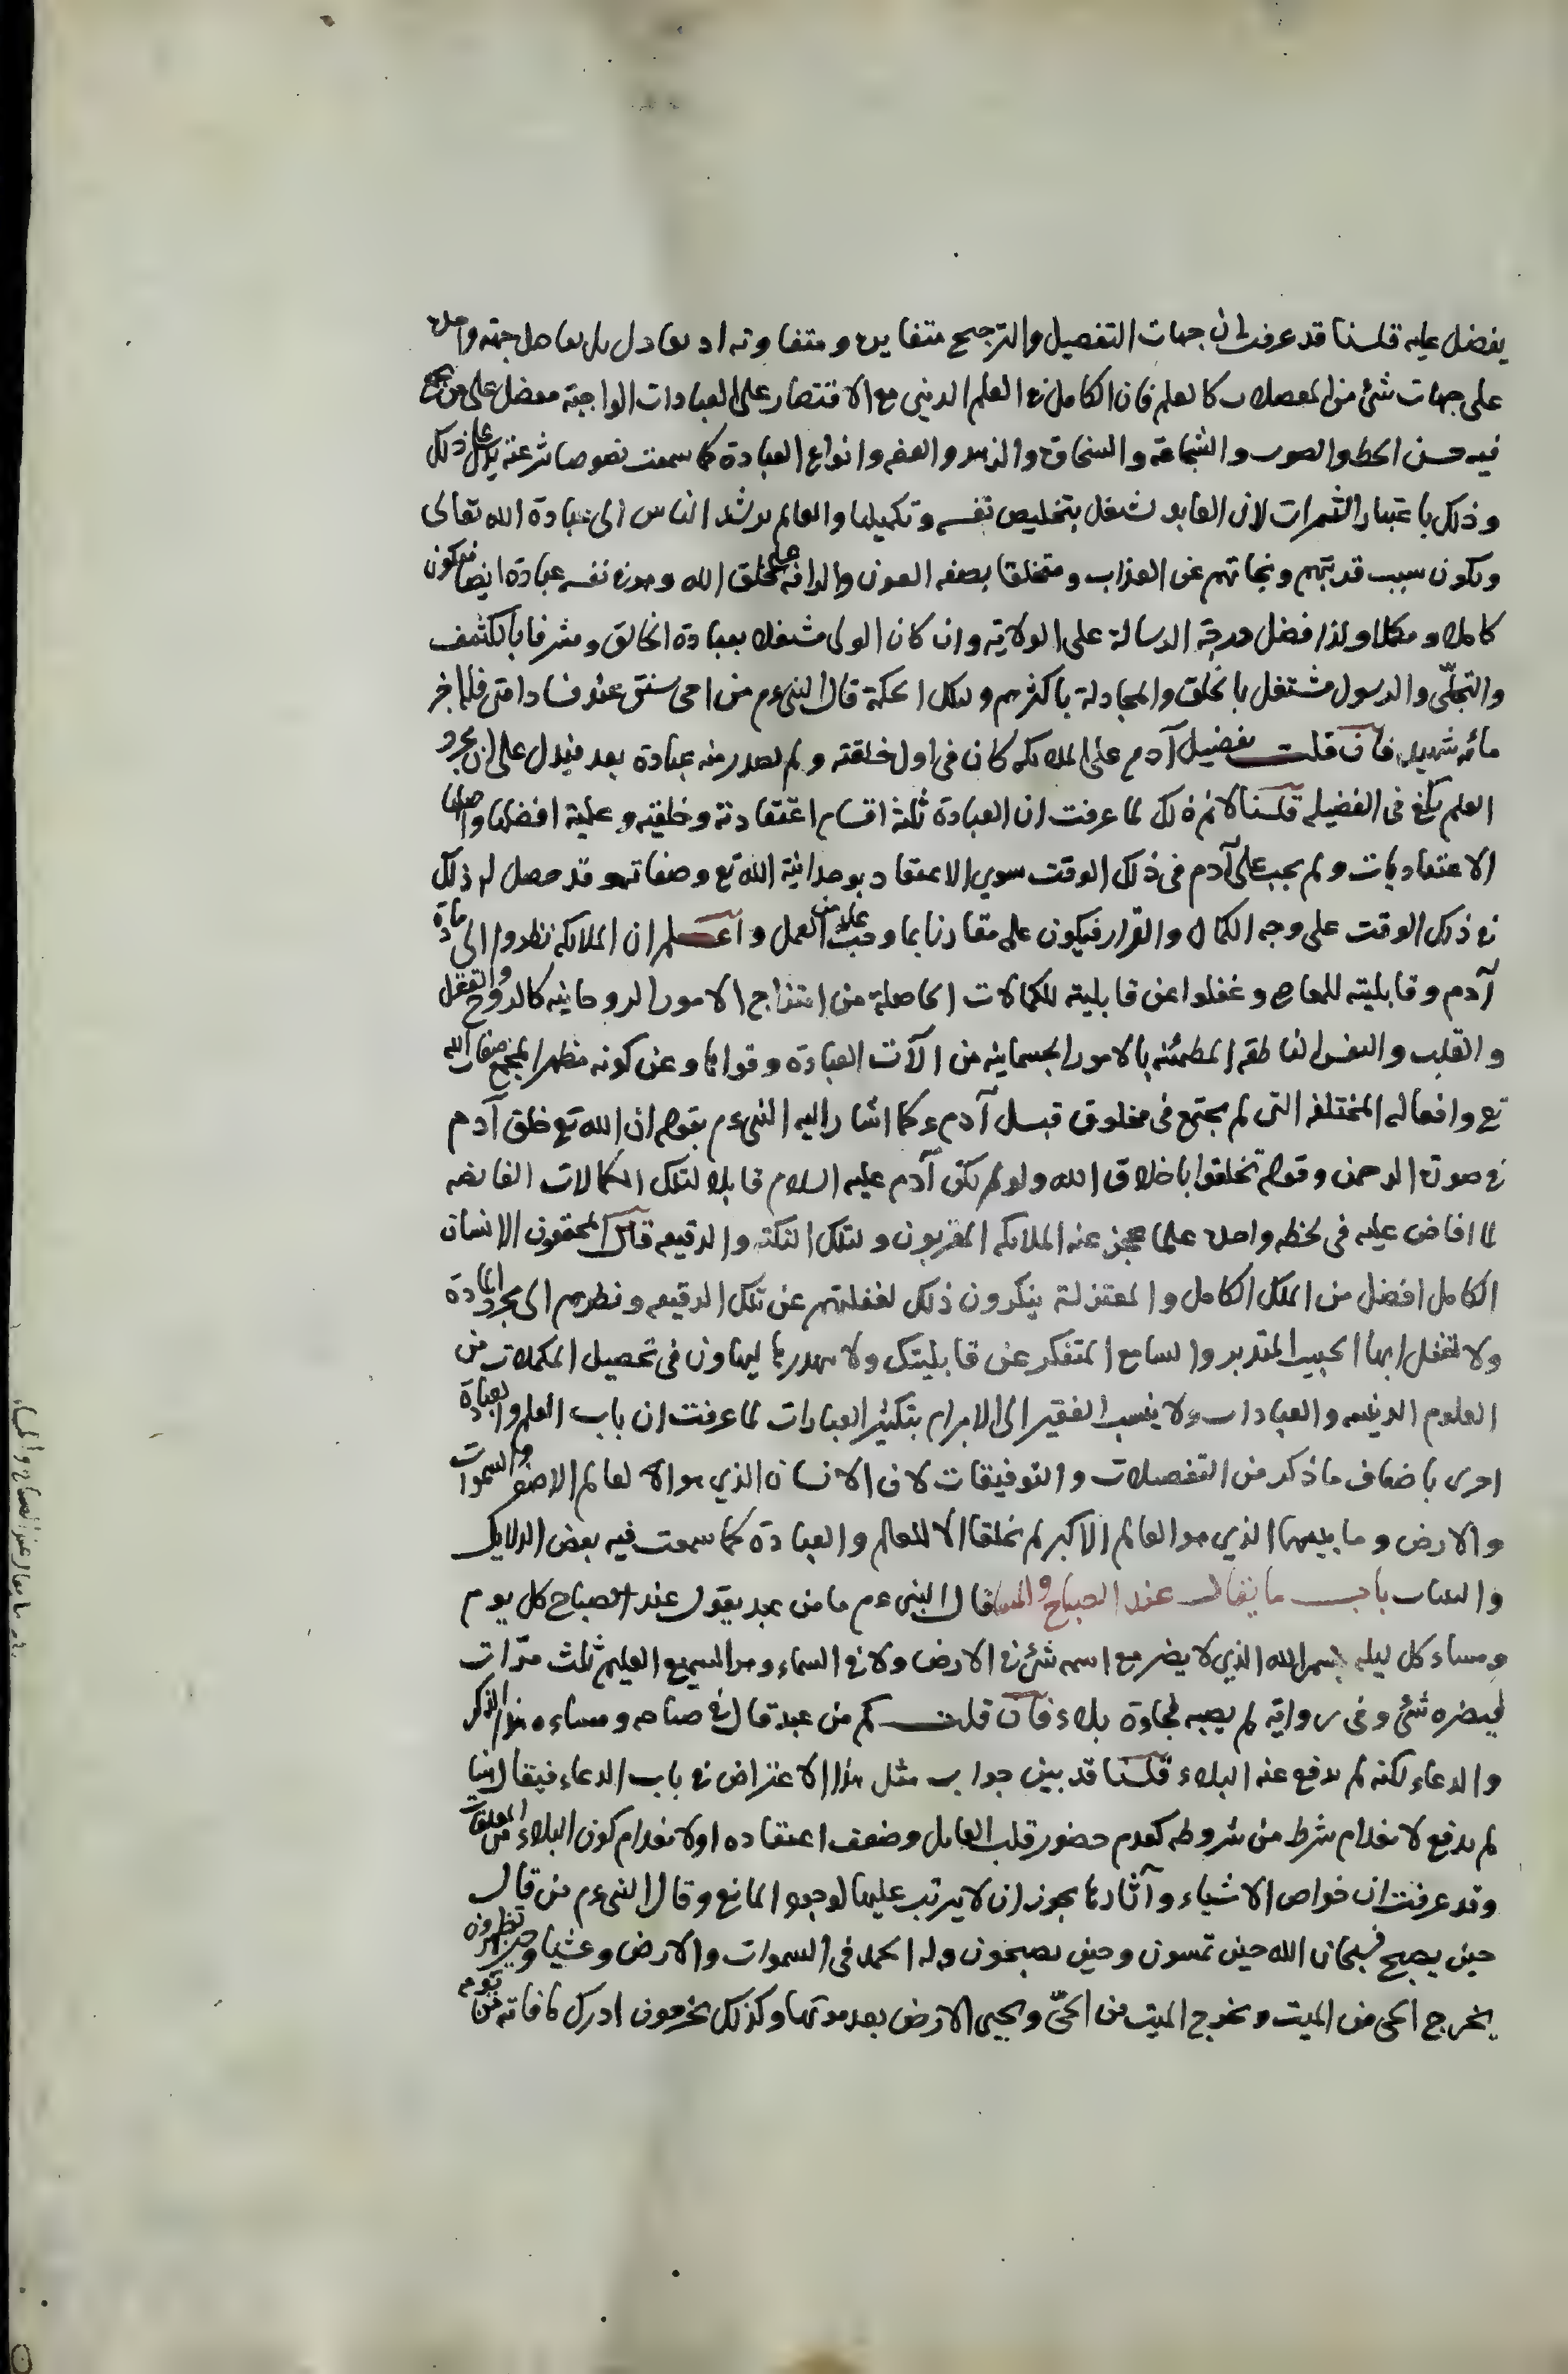 يفضل عليه قلنا قد عرفت ان جهات التفصيل والترجيح متغايرة ومتفاوتة اذ يعادل بل يفاضل جهة واحدة
على جهات شئ من المفصلات كالعلم فان الكامل في العلم الديني مع الاقتصار على العبادات الواجبة مفضل على من جمع
فيه حسن الخط والصوت والشجاعة والسخاوة والزهد والعفة وانواع العبادة كما سمعت نصوصا شرعية يدل على ذلك
وذلك باعتبار الثمرات لان العابد يشتغل بتخليص نفسه وتكميلها والعالم يرشد الناس الى عبادة الله تعالى
ويكون سبب قربتهم ونجاتهم عن العذاب ومتخلقا بصفة العون والرافة على خلق الله وهو في نفسه عبادة ايضا فيكون
كاملا ومكملا ولذا فضل درجة الرسالة على الولاية وان كان الولي مشتغلا بعبادة الخالق ومشرفا بالكشف
والتجلّي والرسول مشتغل بالخلق والمجادلة باكثرهم ولتلك الحكمة قال النبي ءم من احى سنتي عند فساد امتي فله اجر
مائة شهيد فان قلت تفضيل آدم على الملائكة كان في اول خلقته ولم يصدر منه عبادة بعد فيدل على ان مجرد
العلم يكفي في الفضيلة قلنا لانم ذلك لما عرفت ان العبادة ثلثة اقسام اعتقادية وخلقية وعملية افضلها واصلها
الاعتقاديات ولم يجب على آدم في ذلك الوقت سوي الاعتقاد بوحدانية الله تع وصفاته وقد حصل له ذلك
في ذلك الوقت على وجه الكمال والقرار فيكون علمه مقارنا بما وجب عليه من العمل واعلم ان الملائكة نظروا الى مادة
آدم وقابليته للمعاصي وغفلوا عن قابليته للكمالات الحاصلة من امتزاج الامور الروحانية كالروح والعقل
والقلب والنفس الناطقة المطمئنة بالامور الجسمانية من الآت العبادة وقواها وعن كونه مظهرا لجميع صفات الله
تع وافعاله المختلفة التي لم يجتمع في مخلوق قبل آدم ء كما اشار اليه النبي ءم بقوله ان الله تع خلق آدم
في صورة الرحمن وقوله تخلقوا باخلاق الله ولو لم يكن آدم عليه السلام قابلا لتلك الكمالات الفايضة
لما افاض عليه في لحظة واحدة علما عجز عنه الملائكة المقربون ولتلك النكتة والدقيقة قال المحققون الانسان
الكامل افضل من الملك الكامل والمعتزلة ينكرون ذلك لغفلتهم عن تلك الدقيقة ونظرهم الى مجرد المادة
ولا تغفل ايها الحبيب المتدبر والسامع المتفكر عن قابليتك ولا تهدرها ليهاون في تحصيل المكملات من
العلوم الدينية والعبادات ولا ينسب الفقير الى الابرام بتكثير العبارات لما عرفت ان باب العلم والعبادة
احرى باضعاف ما ذكر من التفصيلات والتوفيقات لان الانسان الذي هو العالم الاصغر والسموات
والارض وما بينهما الذي هو العالم الاكبر لم يخلقا الا للعلم والعبادة كما سمعت فيه بعض الدلايل
باب ما يقال عند الصباح والمساء قال النبي ءم ما من عبد يقول عند الصباح كل يوم
ومساء كل ليلة بسم الله الذي لا يضر مع اسمه شئ في الارض ولا في السماء وهو السميع العليم ثلث مرّات
فيضره شئ وفي رواية لم يصبه فجاءة بلاء فان قلت كم من عبد قال في صباحه ومسائه هذا الذكر
والدعاء لكنه لم يدفع عنه البلاء قلنا قد بين جواب مثل هذا الاعتراض في باب الدعاء فيقال هنا
لم يدفع لانعدام شرط من شروطه كعدم حضور قلب العامل وضعف اعتقاده او لانعدام كون البلاء من المعلقات
وقد عرفت ان خواص الاشياء وآثارها يجوز ان لا يترتب عليها لوجود المانع وقال النبي ءم من قال
حين يصبح فسبحان الله حين تمسون وحين تصبحون وله الحمد في السموات والارض وعشيا وحين تظهرون
يخرج الحي من الميت ويخرج الميت من الحيّ ويحيي الارض بعد موتها وكذلك تخرجون ادرك ما فاته من يومه